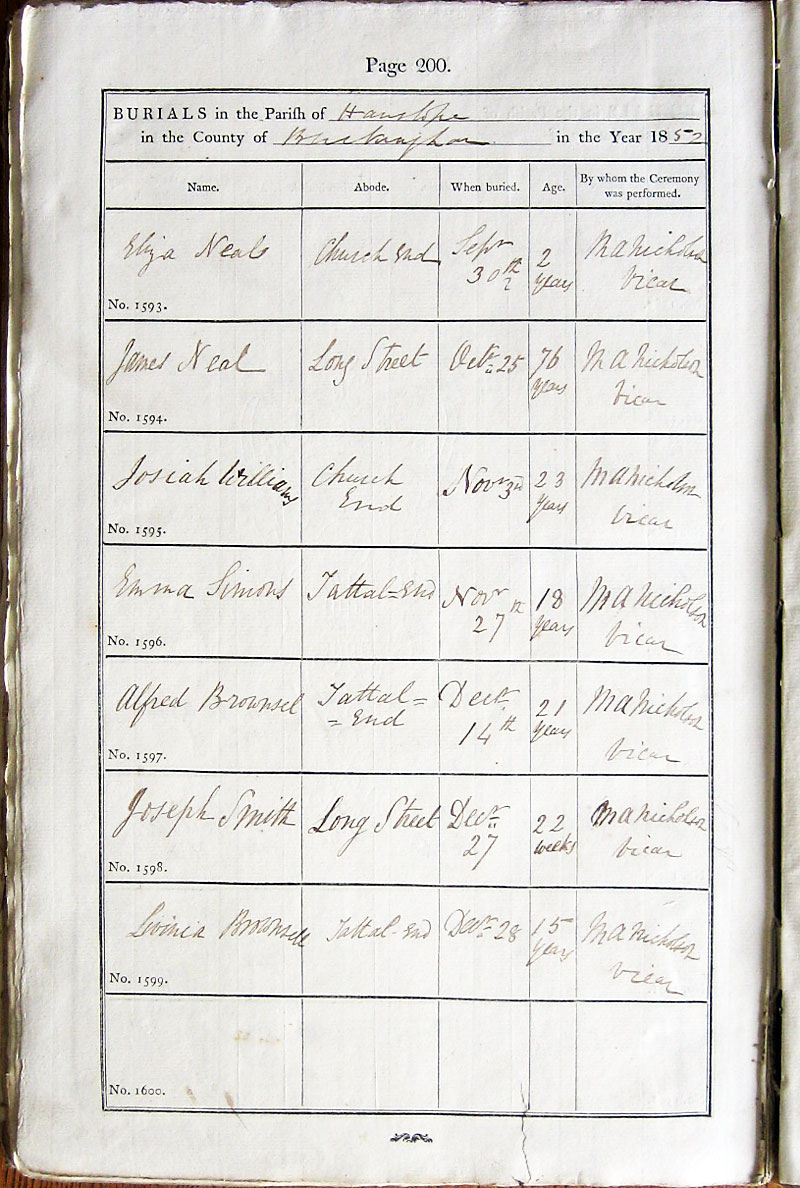 Page 200.
BURIALS in the Parish of Hanslope
in the County of Buckingham in the Year 1852
Name. Abode. When buried. Age. By whom the Ceremony was performed.
Eliza Neals Church End Septr 30th 2 years M A Nicholson Vicar
No. 1593.
James Neal Long Street Octr 25 76 years M A Nicholson Vicar
No. 1594.
Josiah Williams Church End Novr 3rd 23 years M A Nicholson Vicar
No. 1595.
Emma Simons Tattal=End Novr 27th 18 years M A Nicholson Vicar
No. 1596.
Alfred Brownsel Tattal= =End Decr 14th 21 years M A Nicholson Vicar
No. 1597.
Joseph Smith Long Street Decr 27 22 weeks M A Nicholson Vicar
No. 1598.
Lovinia Brownsell Tattal-End Decr 28 15 years M A Nicholson Vicar
No. 1599.
No. 1600.